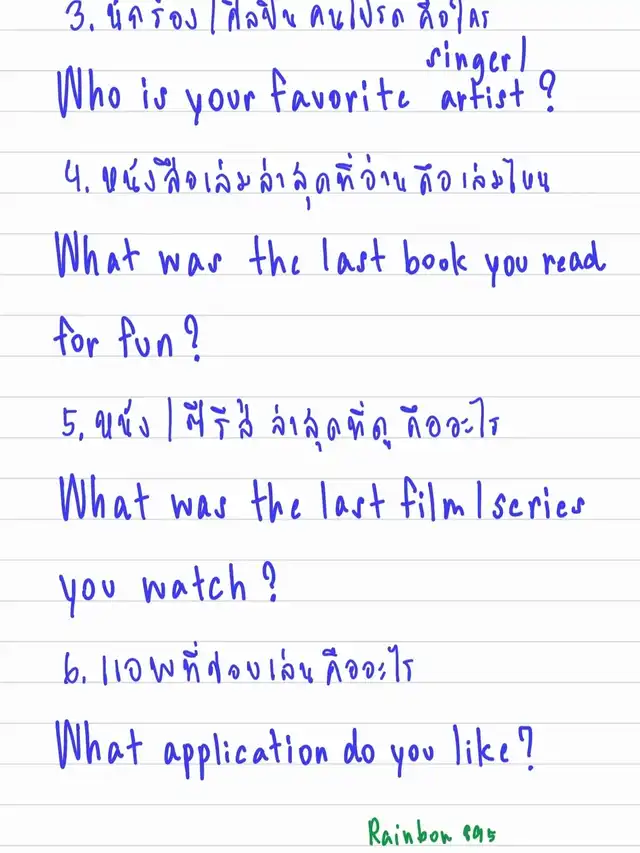 3. นักร้อง / ศิลปิน คนโปรด คือใคร
singer/
Who is your favorite artist?
4. หนังสือเล่มล่าสุดที่อ่านคือเล่มไหน
What was the last book you read
for fun?
5. หนัง / ซีรีส์ ล่าสุดที่ดู คืออะไร
What was the last film/series
you watch?
6. แอพที่ชอบเล่นคืออะไร
What application do you like?
Rainbow